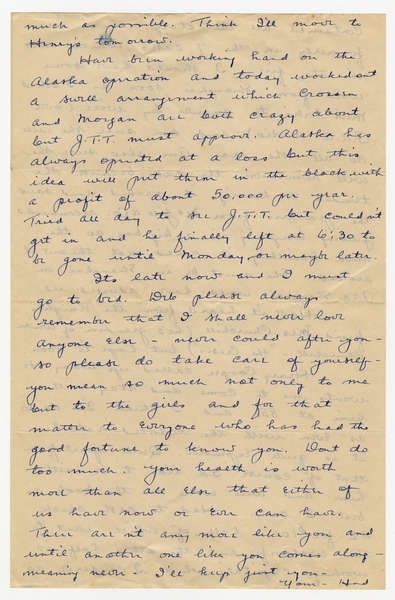 much as possible. Think I'll move to
Henry's tomorrow.
Have been working hard on the
Alaska operation and today worked out
a swell arrangement which Crosson
and Morgan are both crazy about
but J.T.T. must approve. Alaska has
always operated at a loss but this
idea will put them in the black with
a profit of about 50,000 per year.
Tried all day to see J.T.T. but couldn't
get in and he finally left at 6:30 to
be gone until Monday, or maybe later.
Its late now and I must
go to bed. Deb please always
remember that I shall never love
anyone else - never could after you -
so please do take care of yourself -
you mean so much not only to me
but to the girls and for that
matter to everyone who has had the
good fortune to know you. Dont do
too much. Your health is worth
more than all else that either of
us have now or ever can have.
There are n't any more like you and
until another one like you comes along -
meaning never - I'll keep just you -
Your - Hod